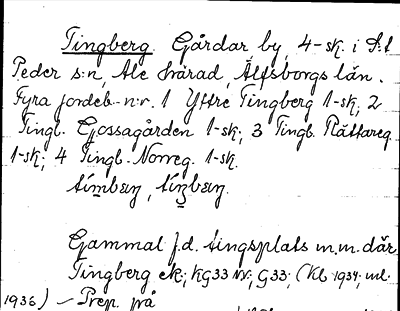 Tingberg Gårdar by, 4-sk. i S:t
Peder s:n, Ale härad, Älfsborgs län.
Fyra jordeb.-n:r. 1 Yttre Tingberg 1-sk; 2
Tingb. Gossagården 1-sk; 3 Tingb. Rättareg.
1-sk; 4 Tingb. Norreg. 1-sk.
Gammal f.d. tingsplats m.m. där
Tingberg ek; KG33 NV; G33; (Kb 1934, utl.
1936) – Prep. på